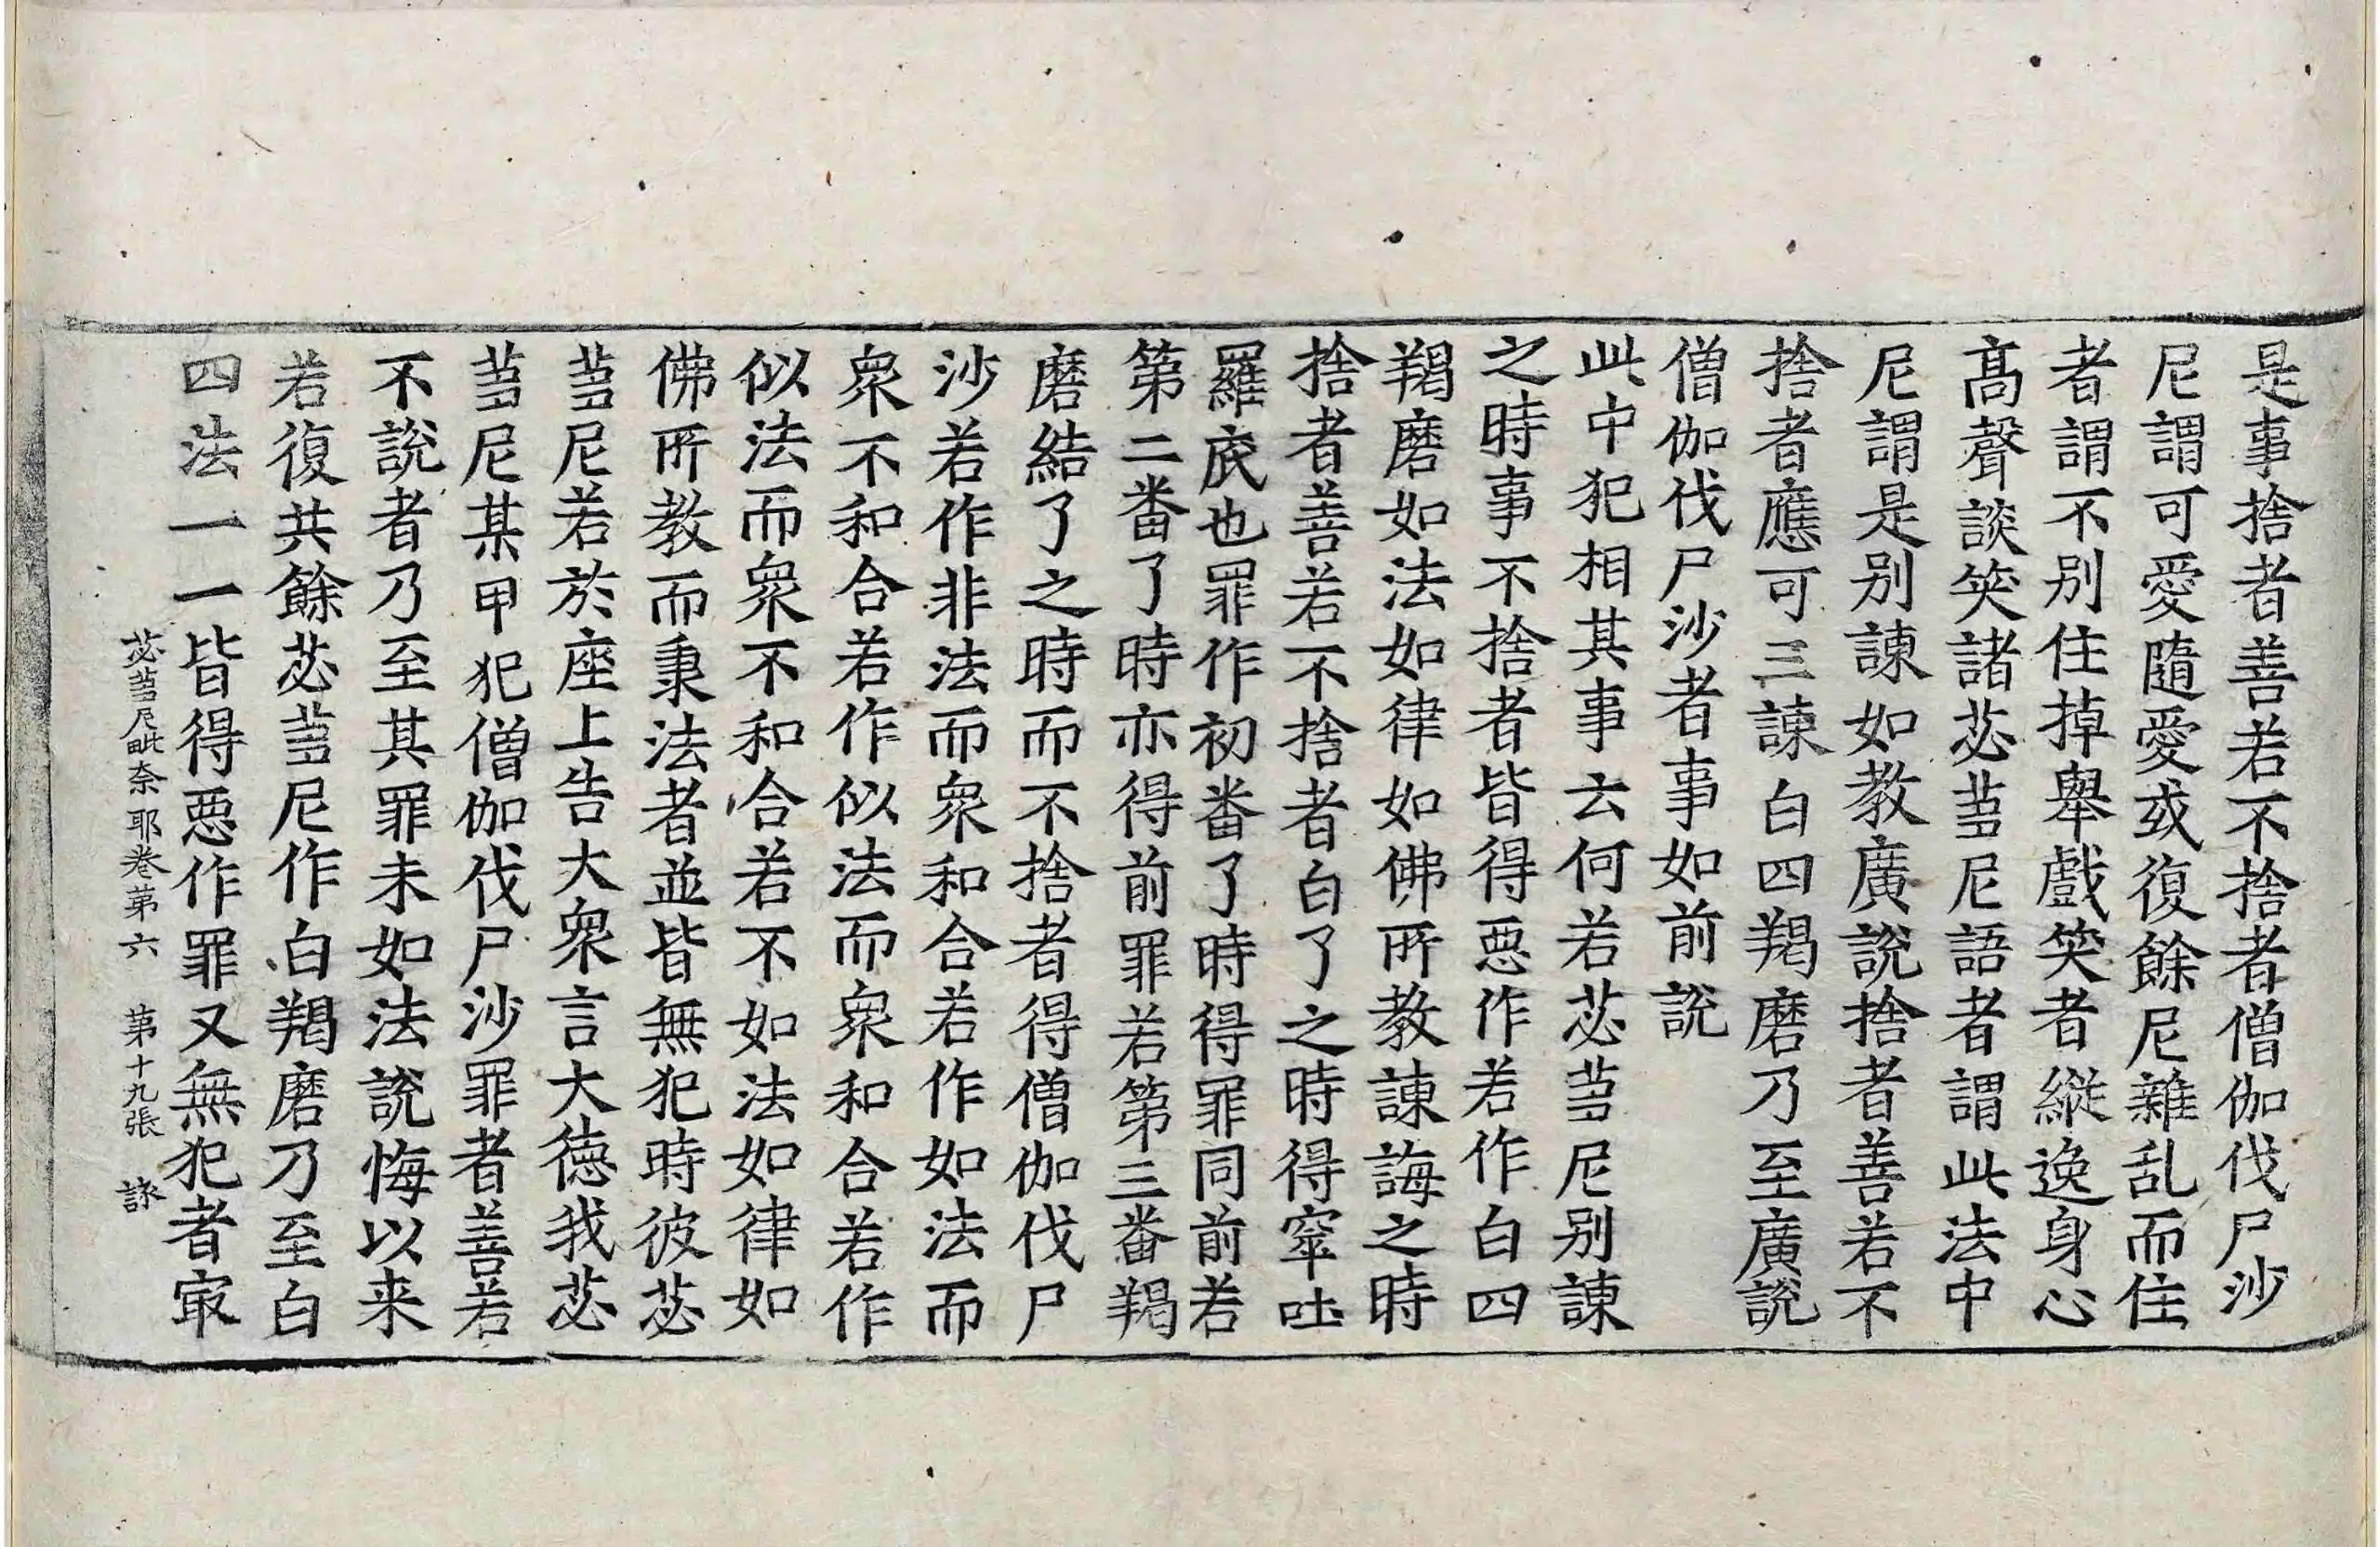 是事捨者善若不捨者僧伽伐尸沙
尼謂可愛隨愛或復餘尼雜乱而住
者謂不別住掉舉戲笑者縱逸身心
高聲談笑諸苾蒭尼語者謂此法中
尼謂是別諫如教廣說捨者善若不
捨者應可三諫白四羯磨乃至廣說
僧伽伐尸沙者事如前說
此中犯相其事云何若苾蒭尼別諫
之時事不捨者皆得惡作若作白四
羯磨如法如律如佛所教諫誨之時
捨者善若不捨者白了之時得窣吐
羅底也罪作初番了時得罪同前若
第二番了時亦得前罪若第三番羯
磨結了之時而不捨者得僧伽伐尸
沙若作非法而衆和合若作如法而
衆不和合若作似法而衆和合若作
似法而衆不和合若不如法如律如
佛所教而秉法者並皆無犯時彼苾
蒭尼若於座上告大衆言大德我苾
蒭尼某甲犯僧伽伐尸沙罪者善若
不說者乃至其罪未如法說悔以来
若復共餘苾蒭尼作白羯磨乃至白
四法一一皆得惡作罪又無犯者㝡
苾蒭尼毗奈耶卷第六 第十九張 詠